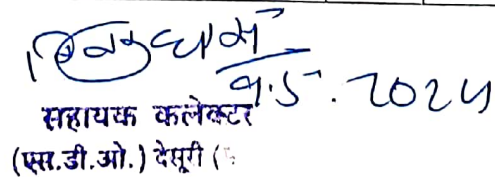 9.5.2024
सहायक कलेक्टर
(एस.डी.ओ.) देसूरी (